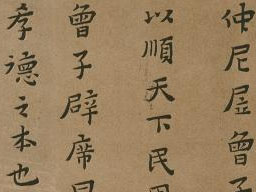 仲尼㞐曾子
以順天下民
曾子辟席曰
孝德之本也